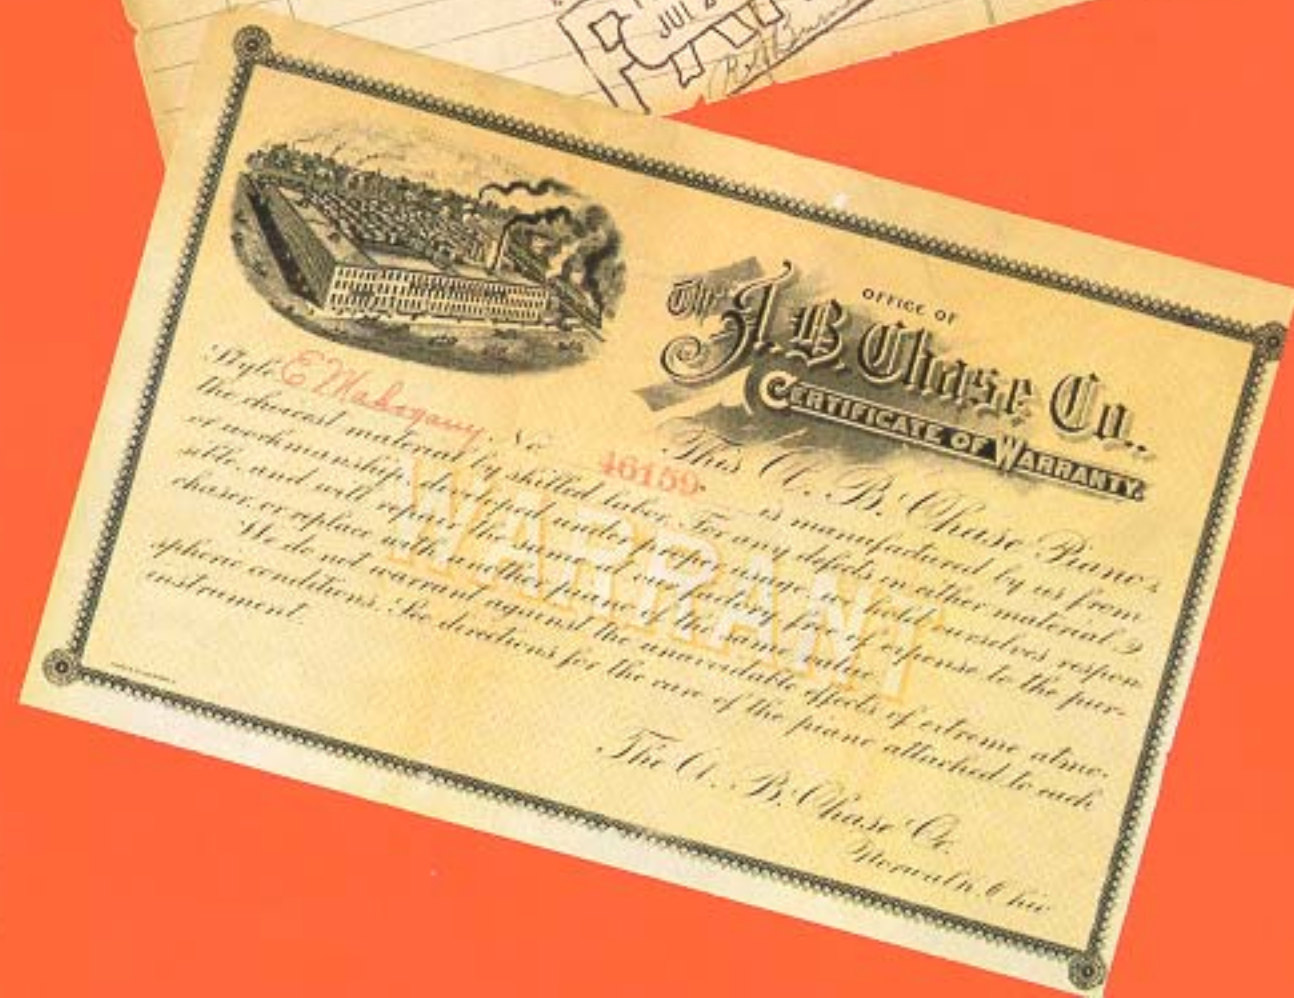 JUL
OFFICE OF
The A. B. Chase Co.,
CERTIFICATE OF WARRANTY.
Style E Mahogany No 46159 This A. B. Chase Piano is manufactured by us from
the choicest material by skilled labor. For any defects in either material
or workmanship, developed under proper usage, we hold ourselves respon
sible, and will repair the same at our factory free of expense to the pur-
chaser, or replace with another piano of the same value.
We do not warrant against the unavoidable effects of extreme atmo-
spheric conditions. See directions for the care of the piano attached to each
instrument.
WARRANT
The A. B. Chase Co.
Norwalk, Ohio